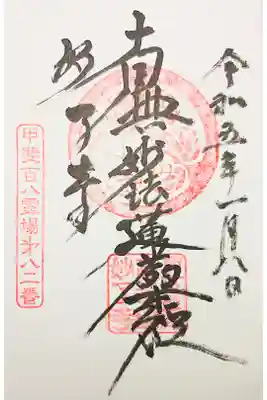 令和五年一月八日
南無妙法蓮華経
妙了寺
甲斐百八霊場㐧八二番